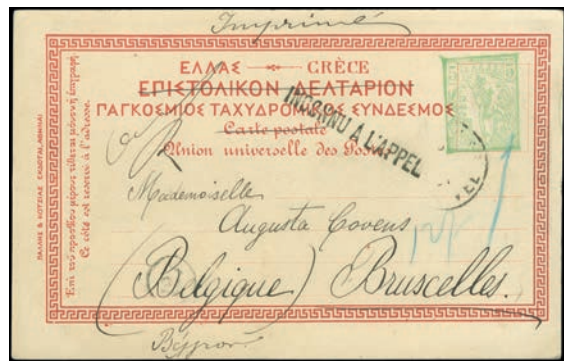 Imprimé
ΕΛΛΑΣ GRÈCE
ΕΠΙΣΤΟΛΙΚΟΝ ΔΕΛΤΑΡΙΟΝ
ΠΑΓΚΟΣΜΙΟΣ ΤΑΧΥΔΡΟΜΙΚΟΣ ΣΥΝΔΕΣΜΟΣ
Carte postale
Union universelle des Postes
INCONNU A L'APPEL
Mademoiselle
Augusta Covens
(Belgique) Bruscelles.
Ce côté est réservé à l'adresse.
ΠΑΛΛΗΣ & ΚΟΤΖΙΑΣ ΕΚΔΟΤΑΙ, ΑΘΗΝΑΙ